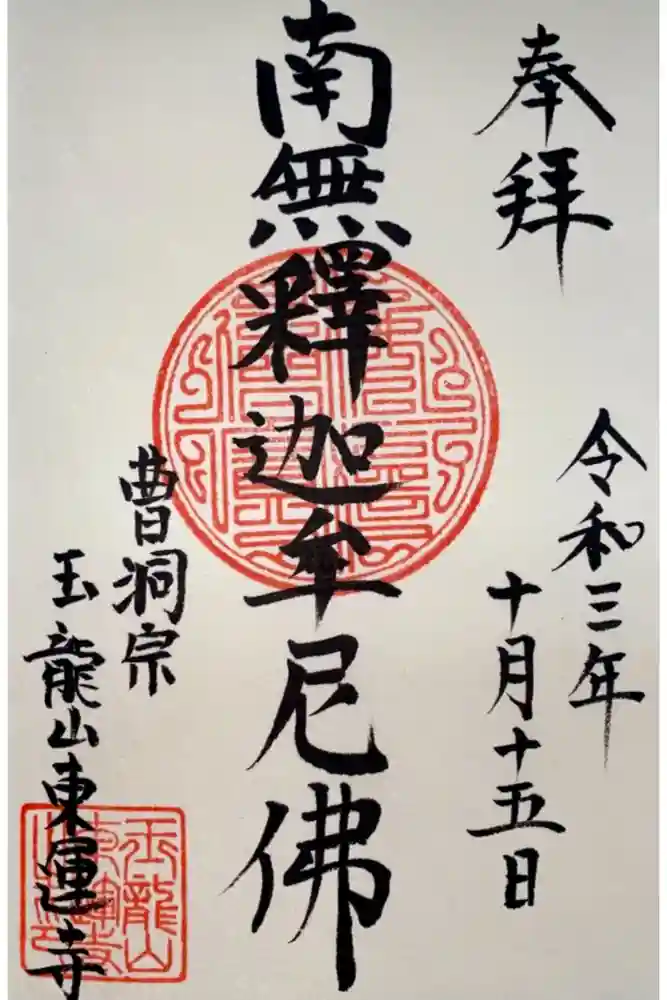 奉拝
令和三年
十月十五日
南無釋迦牟尼佛
曹洞宗
玉龍山東運寺